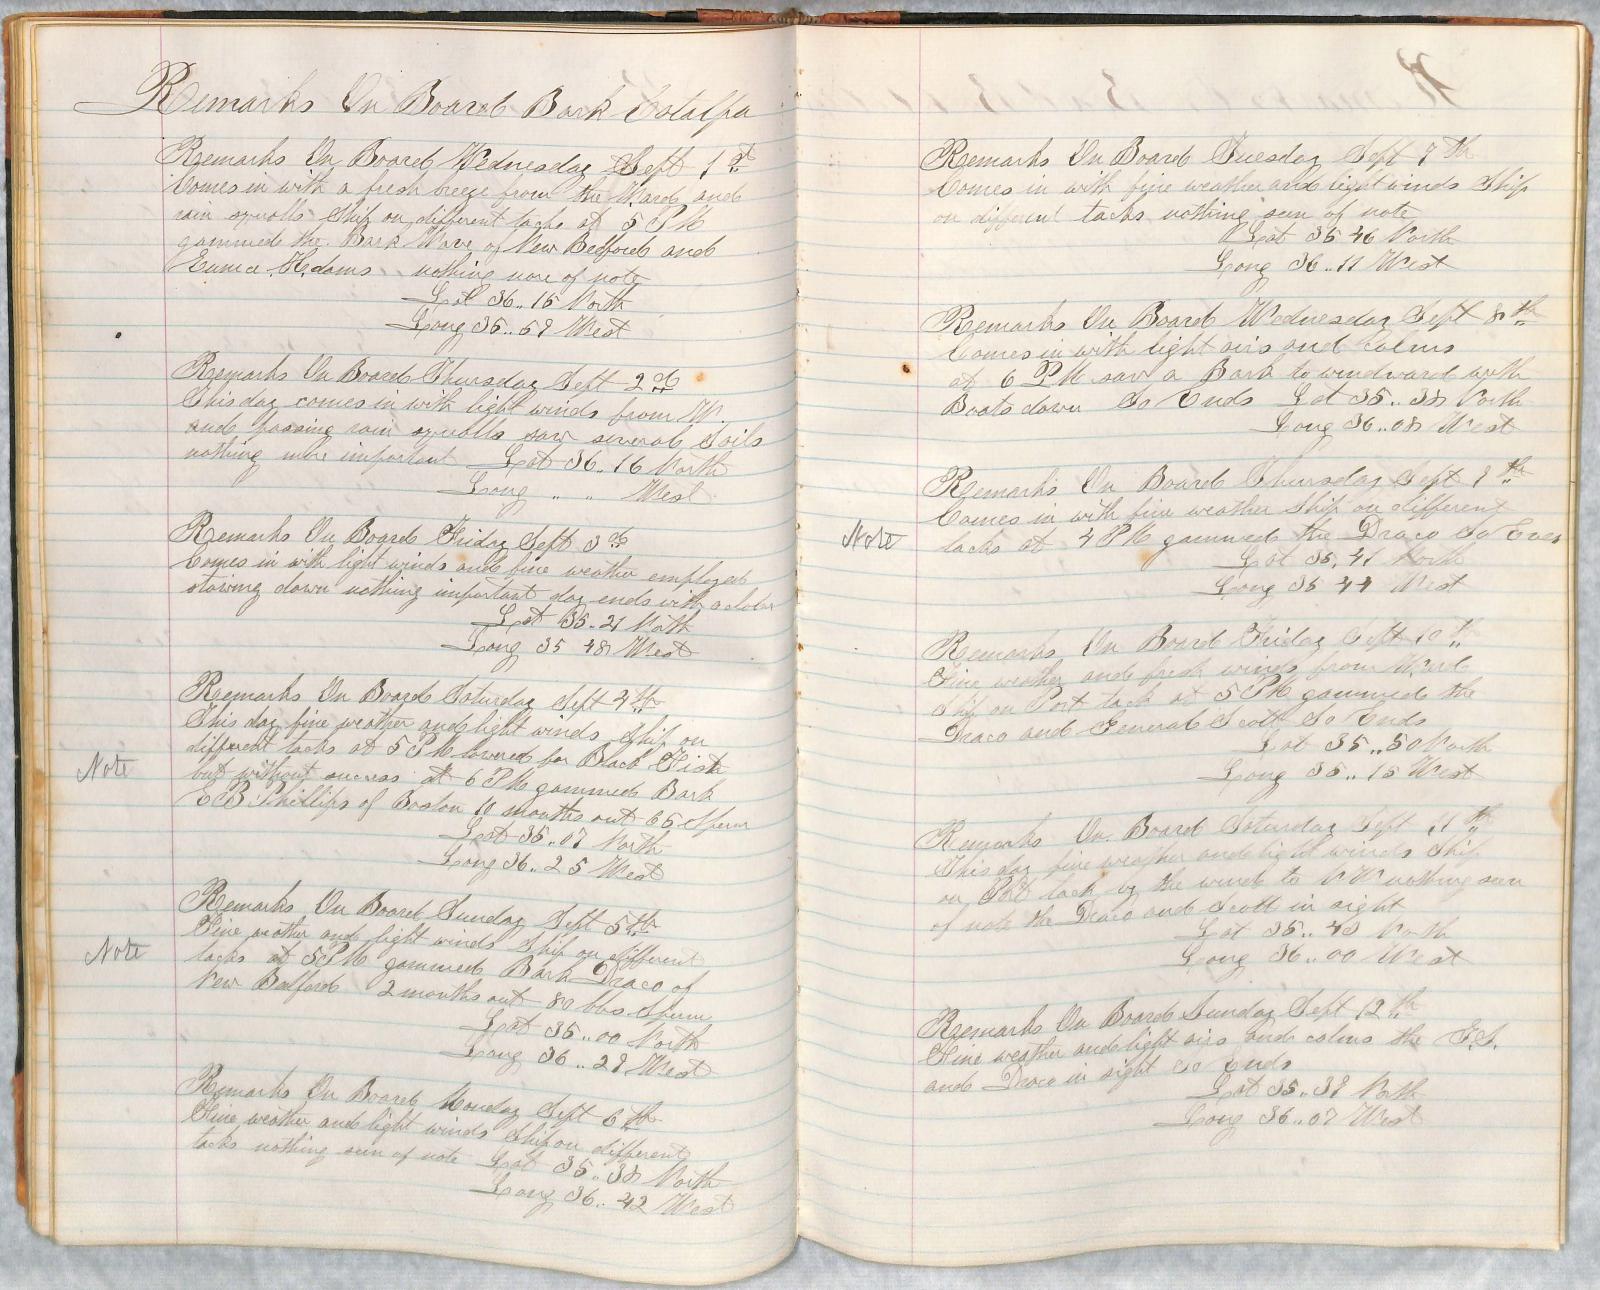 Remarks On Board Bark Catalpa
Remarks On Board Wednesday Sept 1st
Comes in with a fresh breeze from the Ward and
rain squalls Ship on different tacks at 5 PM
gammed the Bark Wave of New Bedford and
Eunice H. Adams nothing more of note
Lat 36.. 15 North
Long 35.. 59 West
Remarks On Board Thursday Sept 2nd
This day comes in with light winds from W.
and passing rain squalls saw several Sails
nothing more important Lat 36.. 16 North
Long " " West
Remarks On Board Friday Sept 3rd
Comes in with light winds and fine weather employed
stowing down nothing important day ends with
Lat 35.. 21 North
Long 35 48 West
Remarks On Board Saturday Sept 4th
This day fine weather and light winds Ship on
different tacks at 5 PM lowered for Black Fish
Note but without success at 6 PM gammed Bark
E B. Phillips of Boston 10 months out 65 Sperm
Lat 35.. 07 North
Long 36.. 25 West
Remarks On Board Sunday Sept 5th
Fine weather and light winds Ship on different
Note tacks at 5 PM gammed Bark Draco of
New Bedford 2 months out 80 bbs Sperm
Lat 35.. 00 North
Long 36.. 29 West
Remarks On Board Monday Sept 6th
Fine weather and light winds Ship on different
tacks nothing seen of note Lat 35.. 38 North
Long 36.. 42 West
Remarks On Board Tuesday Sept 7th
Comes in with fine weather and light winds Ship
on different tacks nothing seen of note
Lat 35 46 North
Long 36.. 11 West
Remarks On Board Wednesday Sept 8th
Comes in with light airs and Calms
at 6 PM saw a Bark to windward with
Boats down So Ends Lat 35.. 38 North
Long 36.. 08 West
Remarks On Board Thursday Sept 9th
Comes in with fine weather Ship on different
Note tacks at 4 PM gammed the Draco So Ends
Lat 35. 41 North
Long 35 44 West
Remarks On Board Friday Sept 10th
Fine weather and fresh winds from Ward
Ship on Port tack at 5 PM gammed the
Draco and General Scott So Ends
Lat 35.. 50 North
Long 35.. 15 West
Remarks On Board Saturday Sept 11th
This day fine weather and light winds Ship
on Port tack by the wind to NW nothing seen
of note the Draco and Scott in sight
Lat 35.. 43 North
Long 36.. 00 West
Remarks On Board Sunday Sept 12th
Fine weather and light airs and calms the G.S.
and Draco in sight So Ends
Lat 35.. 39 North
Long 36.. 07 West